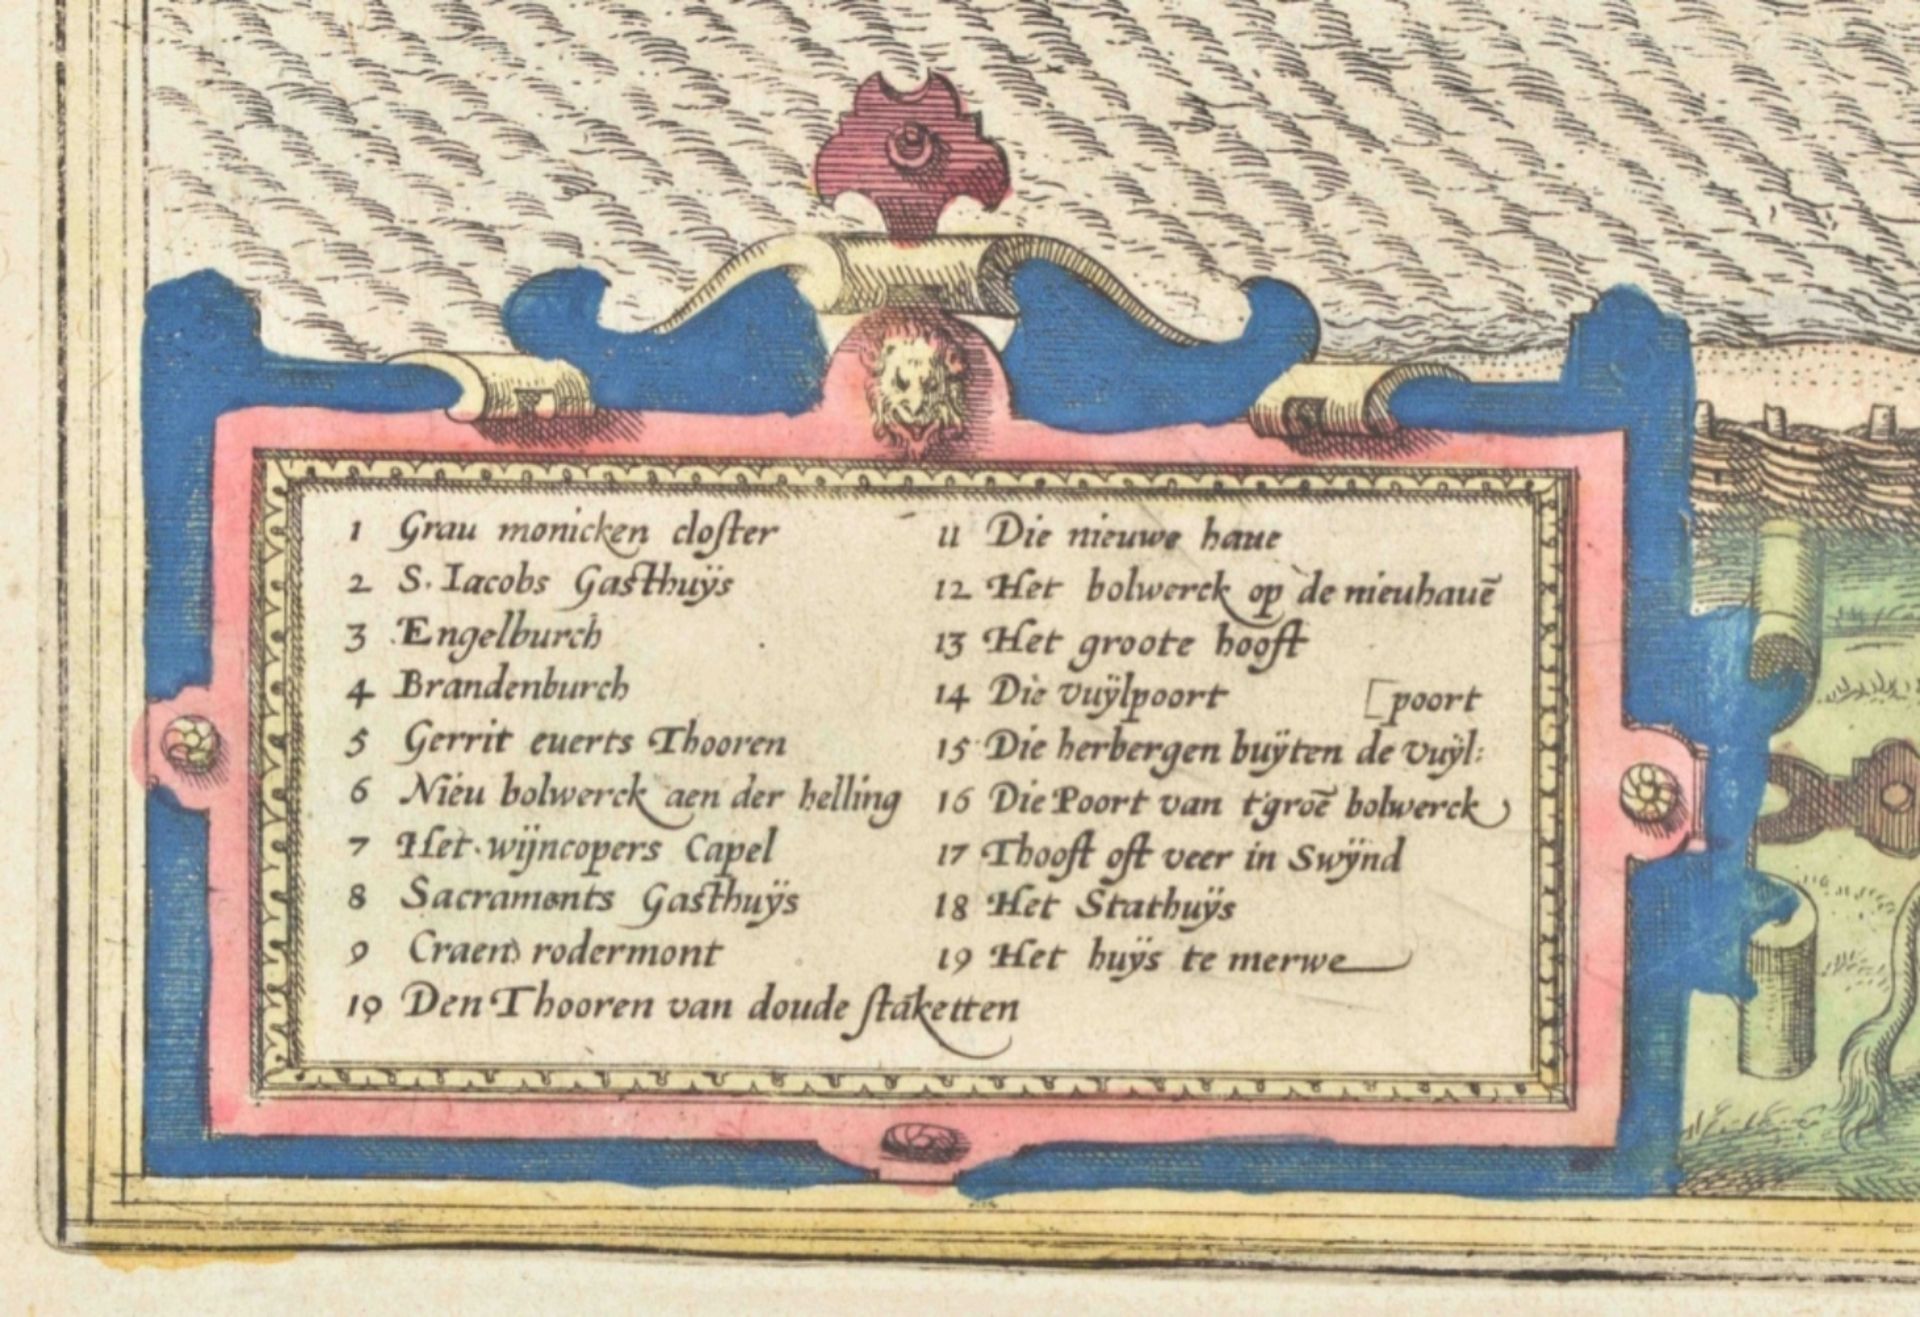 1 Grau monicken closter
2 S. Iacobs Gasthuÿs
3 Engelburch
4 Brandenburch
5 Gerrit euerts Thooren
6 Nieu bolwerck aen der helling
7 Het wijncopers Capel
8 Sacraments Gasthuÿs
9 Craen rodermont
10 Den Thooren van doude staketten
11 Die nieuwe haue
12 Het bolwerck op de nieuhauē
13 Het groote hooft
14 Die vuÿlpoort [poort
15 Die herbergen buÿten de vuÿl:
16 Die Poort van t'groē bolwerck
17 Thooft oft veer in Swÿnd
18 Het Stathuÿs
19 Het huÿs te merwe